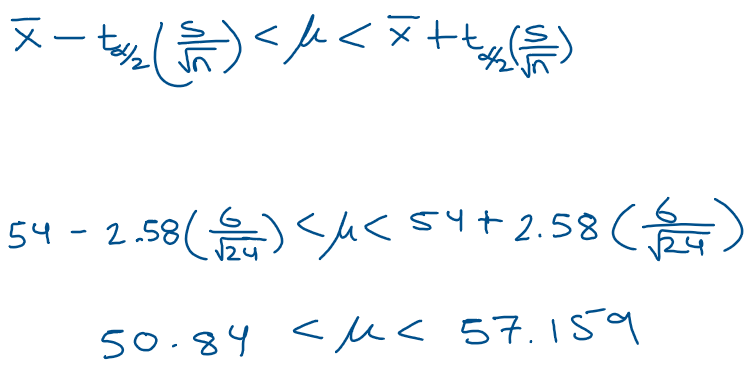 x̄ − t_α/2 (s/√n) < μ < x̄ + t_α/2 (s/√n)
54 - 2.58 (6/√24) < μ < 54 + 2.58 (6/√24)
50.84 < μ < 57.159